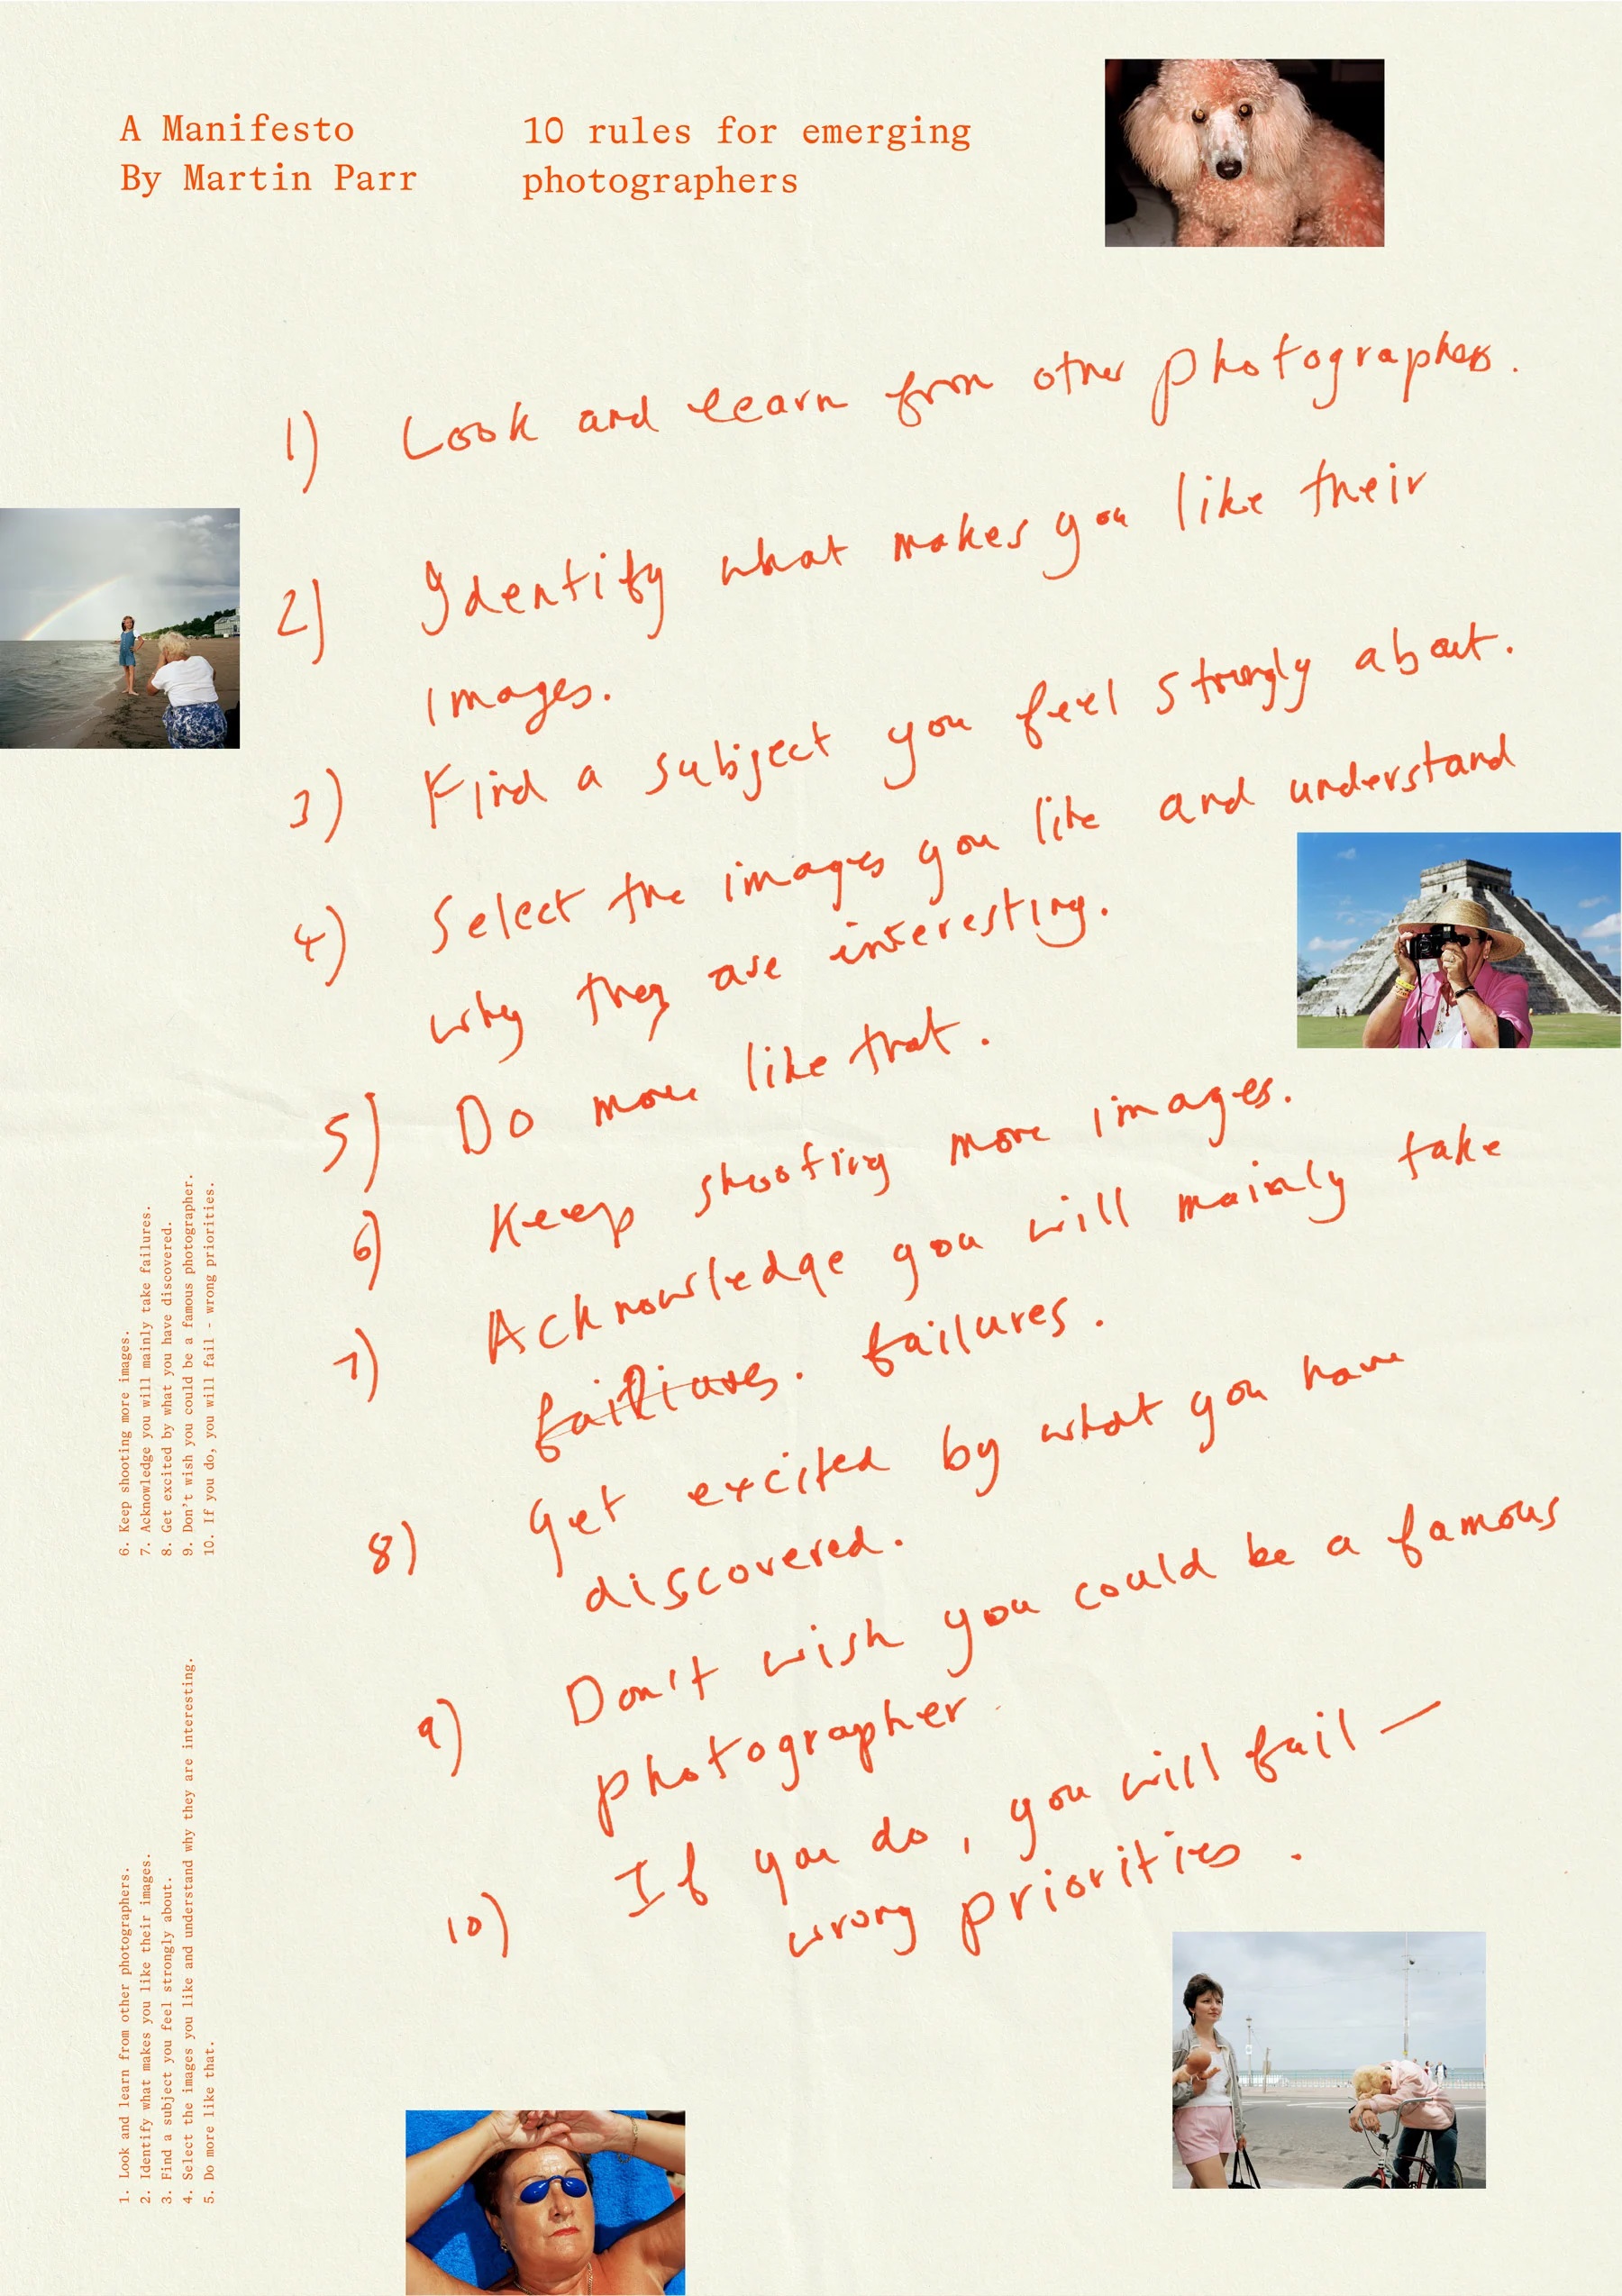 A Manifesto
By Martin Parr
10 rules for emerging
photographers
1) Look and learn from other photographers.
2) Identify what makes you like their
images.
3) Find a subject you feel strongly about.
4) Select the images you like and understand
why they are interesting.
5) Do more like that.
6) Keep shooting more images.
7) Acknowledge you will mainly take
failures.
8) Get excited by what you have
discovered.
9) Don't wish you could be a famous
photographer
10) If you do, you will fail —
wrong priorities.
6. Keep shooting more images.
7. Acknowledge you will mainly take failures.
8. Get excited by what you have discovered.
9. Don't wish you could be a famous photographer.
10. If you do, you will fail - wrong priorities.
1. Look and learn from other photographers.
2. Identify what makes you like their images.
3. Find a subject you feel strongly about.
4. Select the images you like and understand why they are interesting.
5. Do more like that.